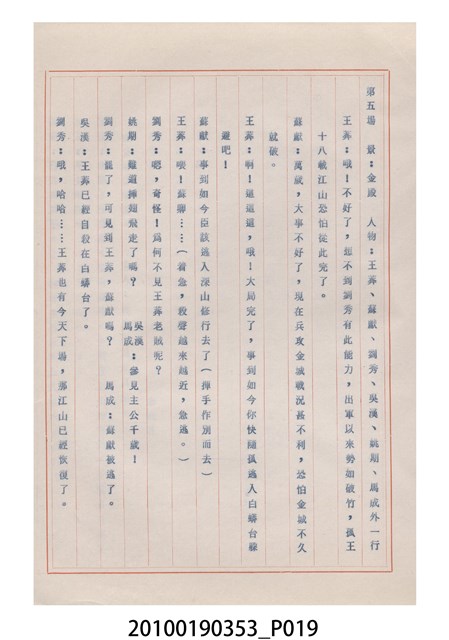 第五場　景：金殿　人物：王莽、蘇獻、劉秀、吳漢、姚期、馬成外一行
王莽：哦！不好了，想不到劉秀有此能力，出軍以來勢如破竹，孤王
十八載江山恐怕從此完了。
蘇獻：萬歲，大事不好了，現在兵攻金城戰況甚不利，恐怕金城不久
就破。
王莽：啊！這這這，哦！大局完了，事到如今你快隨孤逃入白蟒台躲
避吧！
蘇獻：事到如今臣該逃入深山修行去了（揮手作別而去）
王莽：喂！蘇卿……（着急，殺聲越來越近，急逃。）
劉秀：嗯，奇怪！爲何不見王莽老賊呢？
姚期：難道揷翅飛走了嗎？　吳漢：馬成：參見主公千歲！
劉秀：罷了，可見到王莽，蘇獻嗎？　馬成：蘇獻被逃了。
吳漢：王莽已經自殺在白蟒台了。
劉秀：哦，哈哈……王莽也有今天下場，那江山已經恢復了。
20100190353_P019